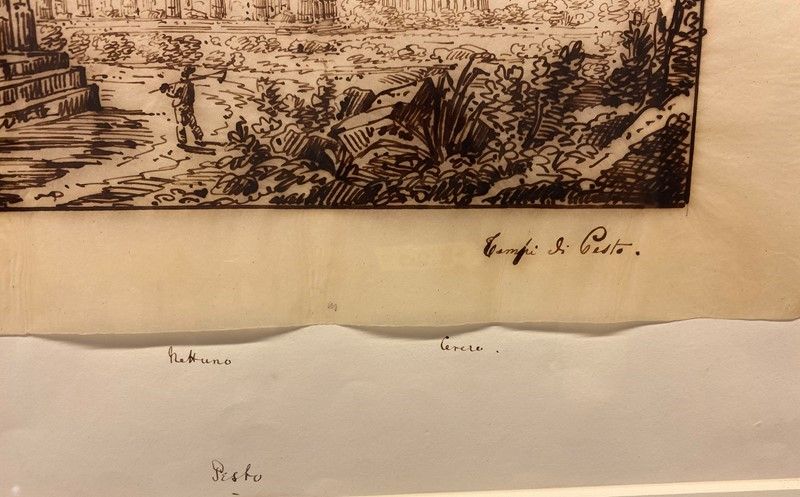 Tempi di Pesto.
Nettuno
Cerere.
Pesto